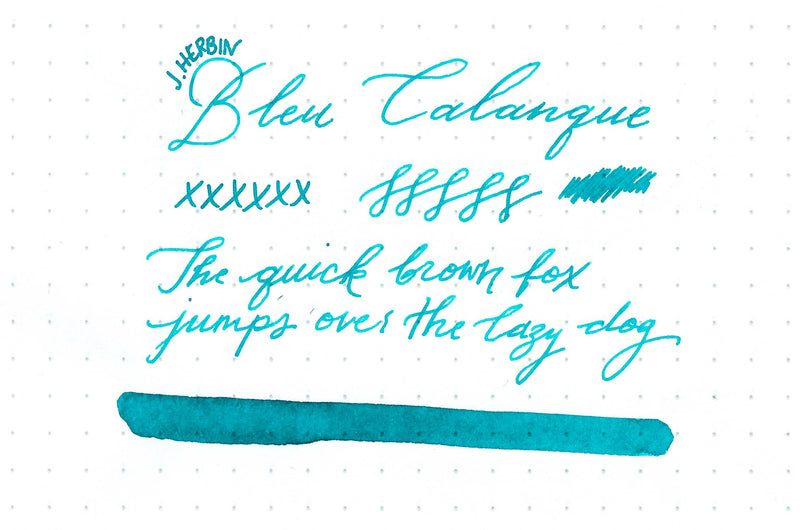 J. HERBIN
Bleu Calanque
xxxxxx fffff
The quick brown fox
jumps over the lazy dog